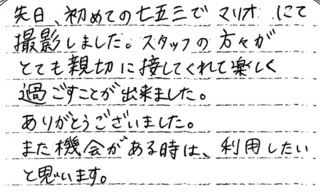 先日、初めての七五三でマリオにて
撮影しました。スタッフの方々が
とても親切に接してくれて楽しく
過ごすことが出来ました。
ありがとうございました。
また機会がある時は、利用したい
と思います。